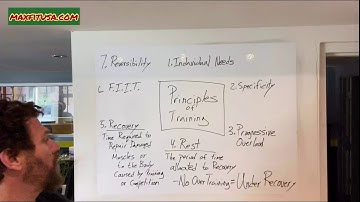 MAXFITUSA.COM
7. Reversibility
1. Individual Needs
6. F.I.I.T.
Principles
of
Training
2. Specificity
3. Progressive
Overload
5. Recovery
Time Required to
Repair Damaged
Muscles or
to the Body
Caused by Training
or Competition
4. Rest
The period of time
allocated to Recovery
-No OverTraining=Under Recovery